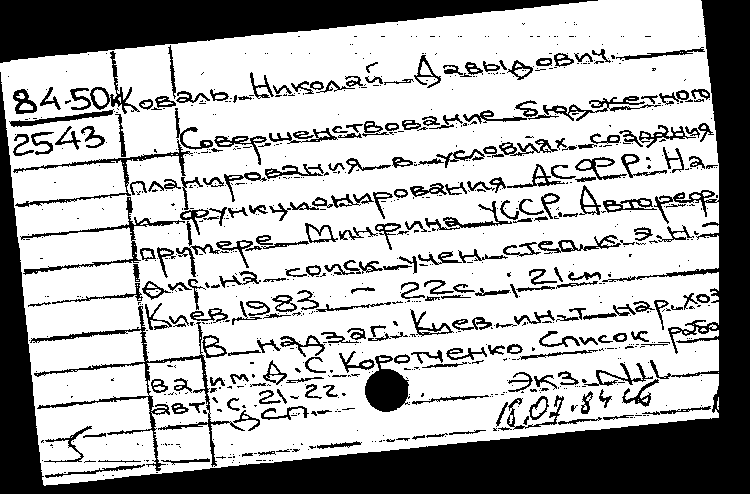 84-50к Коваль, Николай Давыдович.
2543 Совершенствование бюджетного
планирования в условиях создания
и функционирования АСФР: На
примере Минфина УССР. Автореф.
дис. на соиск. учен. степ. к. э. н. -
Киев, 1983. - 22с. ; 21см.
В надзаг.: Киев. ин-т нар. хоз
ва им. Д. С. Коротченко. Список рабо
авт.: с. 21-22. Экз. N III
ДСП. 18.07.84
5